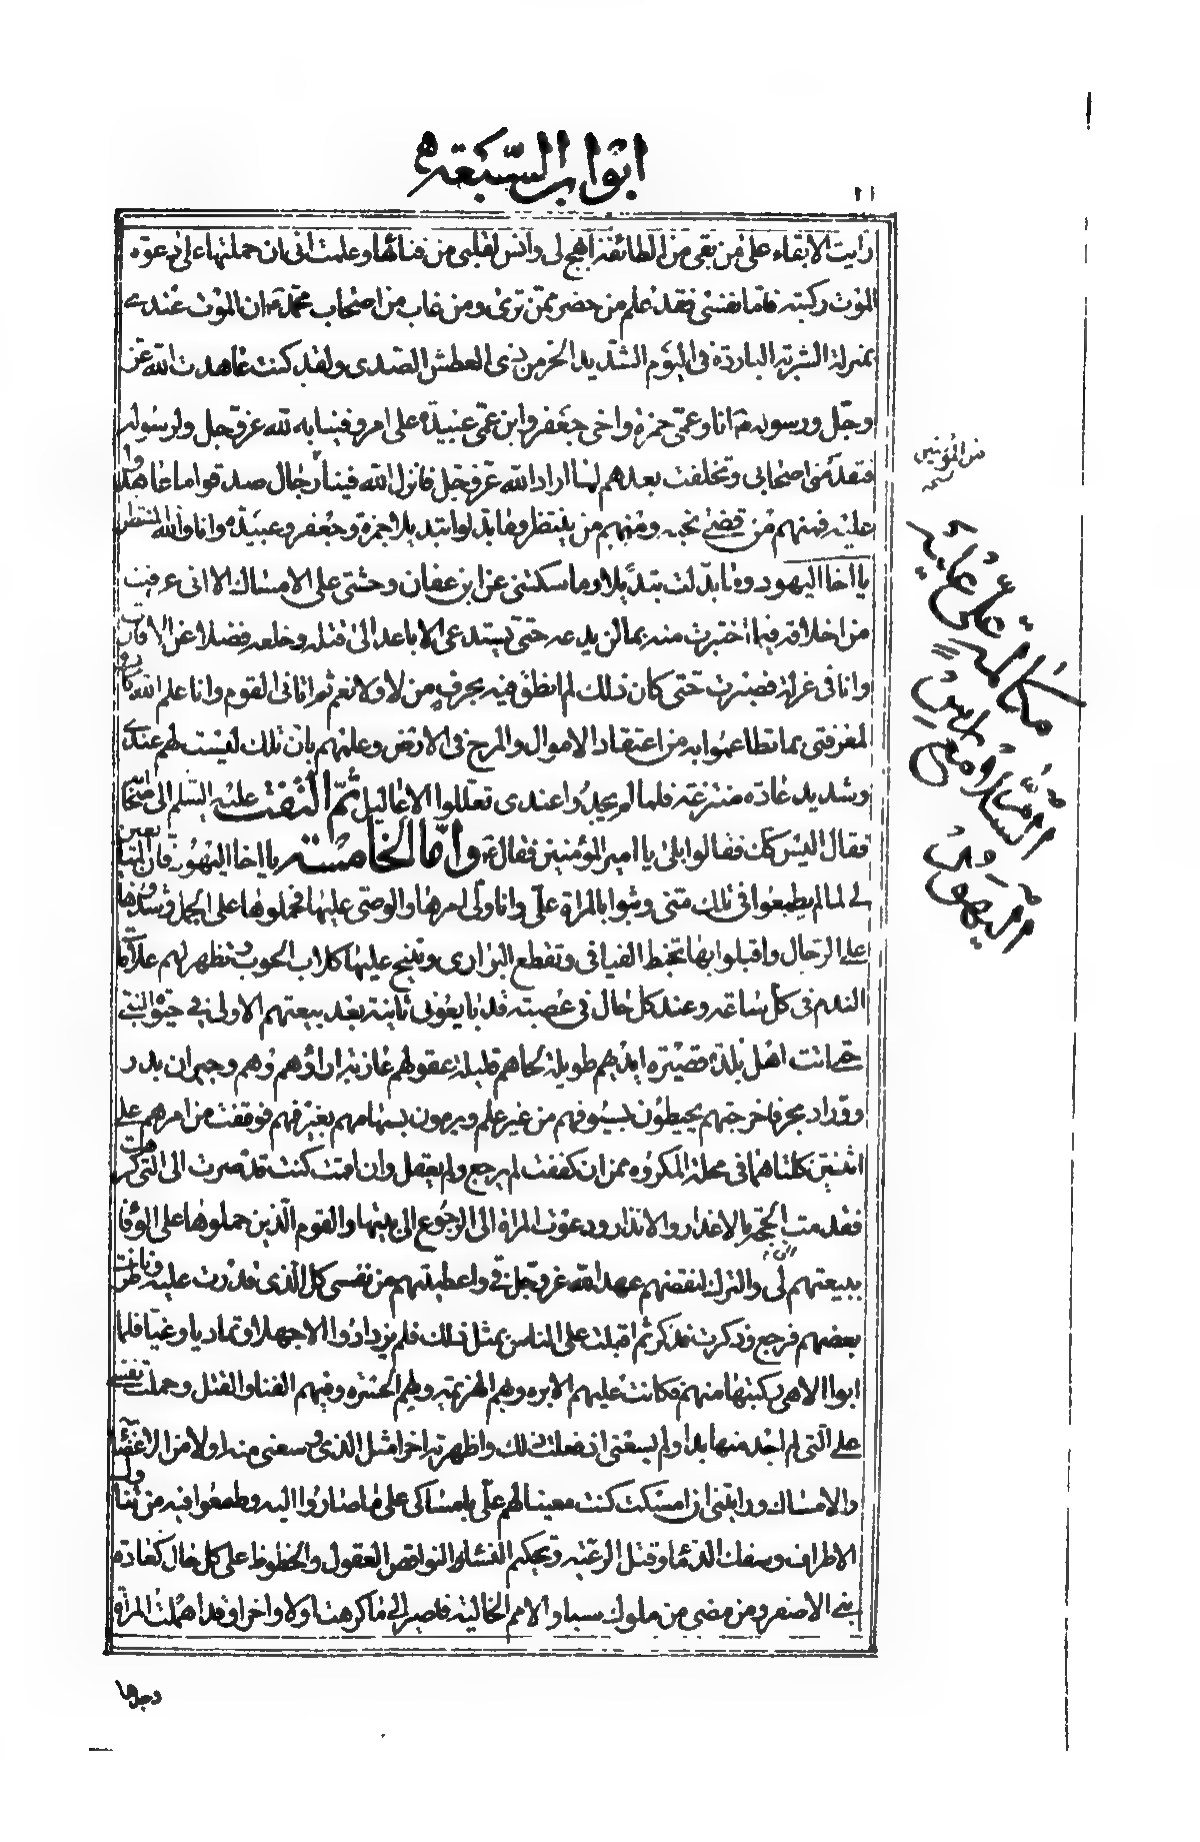 ابواب السبعة
٢١
رايت الابقاء على من بقى من الطائفة ابهج لى وانس لقلبى من فنائها وعلمت انى ان حملتها على دعوة
الموت ركبته فاما نفسى فقد علم من حضر ممن ترى ومن غاب من اصحاب محمد ص ان الموت عندى
بمنزلة الشربة الباردة فى اليوم الشديد الحر من ذى العطش الصدى ولقد كنت عاهدت الله عز
وجل ورسوله ص انا وعمى حمزة واخى جعفر وابن عمى عبيدة على امر وفينا به لله عز وجل ولرسوله
فتقدمنى اصحابى وتخلفت بعدهم لما اراد الله عز وجل فانزل الله فينا رجال صدقوا ما عاهدوا الله
عليه فمنهم من قضى نحبه ومنهم من ينتظر وما بدلوا تبديلا حمزة وجعفر وعبيدة وانا والله المنتظر
يا اخا اليهود وما بدلت تبديلا وما سكتنى عن ابن عفان وحثنى على الامساك الا انى عرفت
من اخلاقه فيما اختبرت منه بما لن يدعه حتى يستدعى الاباعد الى قتله وخلعه فضلا عن الاقارب
وانا فى عزلة فصبرت حتى كان ذلك لم انطق فيه بحرف من لا ولا نعم ثم اتانى القوم وانا علم الله كاره
لمعرفتى بما تطاعموا به من اعتقاد الاموال والمرح فى الارض وعلمهم بان تلك ليست لهم عندى
وشديد عادة منتزعة فلما لم يجدوا عندى تعللوا الاعاليل ثم التفت عليه السلم الى اصحابه
فقال اليس كك فقالوا بلى يا امير المؤمنين فقال ع واما الخامسة يا اخا اليهود فان المتابعين
لى لما لم يطمعوا فى تلك منى وثبوا بالمراة على وانا ولى امرها والوصى عليها فحملوها على الجمل وشدوها
على الرحال واقبلوا بها تخبط الفيافى وتقطع البرارى وتنبح عليها كلاب الحوب وتظهر لهم علامات
الندم فى كل ساعة وعند كل حال فى عصبة قد بايعونى ثانية بعد بيعتهم الاولى فى حيوة النبى
حتى اتت اهل بلدة قصيرة ايديهم طويلة لحاهم قليلة عقولهم عازبة اراؤهم وهم وجيران بدر
ووراد بحر فاخرجتهم يخبطون بسيوفهم من غير علم ويرمون بسهامهم بغير فهم فوقفت من امرهم على
اثنتين كلتاهما فى محلة المكروه ممن ان كففت لم يرجع ولم يعقل وان اقمت كنت قد صرت الى التى كرهت
فقدمت الحجة بالاعذار والانذار ودعوت المراة الى الرجوع الى بيتها والقوم الذين حملوها على الوفا
ببيعتهم لى والترك لنقضهم عهد الله عز وجل فى واعطيتهم من نفسى كل الذى قدرت عليه وناظرت
بعضهم فرجع وذكرت فذكر ثم اقبلت على الناس بمثل ذلك فلم يزدادوا الا جهلا وتماديا وغيا فلما
ابوا الا هى ركبتها منهم فكانت عليهم الدبرة وبهم الهزيمة ولهم الحسرة وفيهم الفنا والقتل وحملت نفسى
على التى لم اجد منها بدا ولم يسعنى اذ فعلت ذلك واظهرته اخرا مثل الذى وسعنى منه اولا من الاغضاء
والامساك ورايتنى ان امسكت كنت معينا لهم على بامساكى على ما صاروا اليه وطمعوا فيه من تناول
الاطراف وسفك الدما وقتل الرعية وتحكيم النساء النواقص العقول والحظوظ على كل حال كعادة
بنى الاصفر ومن مضى من ملوك سبا والامم الخالية فاصير الى ما كرهت اولا واخرا وقد اهملت المراة
من المؤمنين
مكالمة على عليه
السلام مع راس
اليهود
وجندها